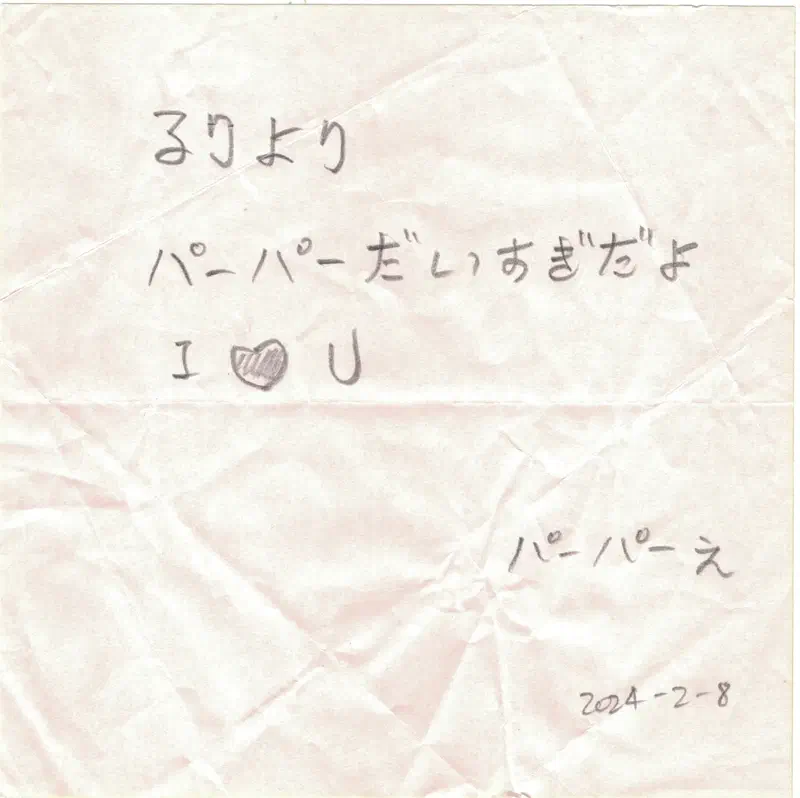 るりより
パーパーだいすぎだよ
I ♥ U
パーパーえ
2024-2-8